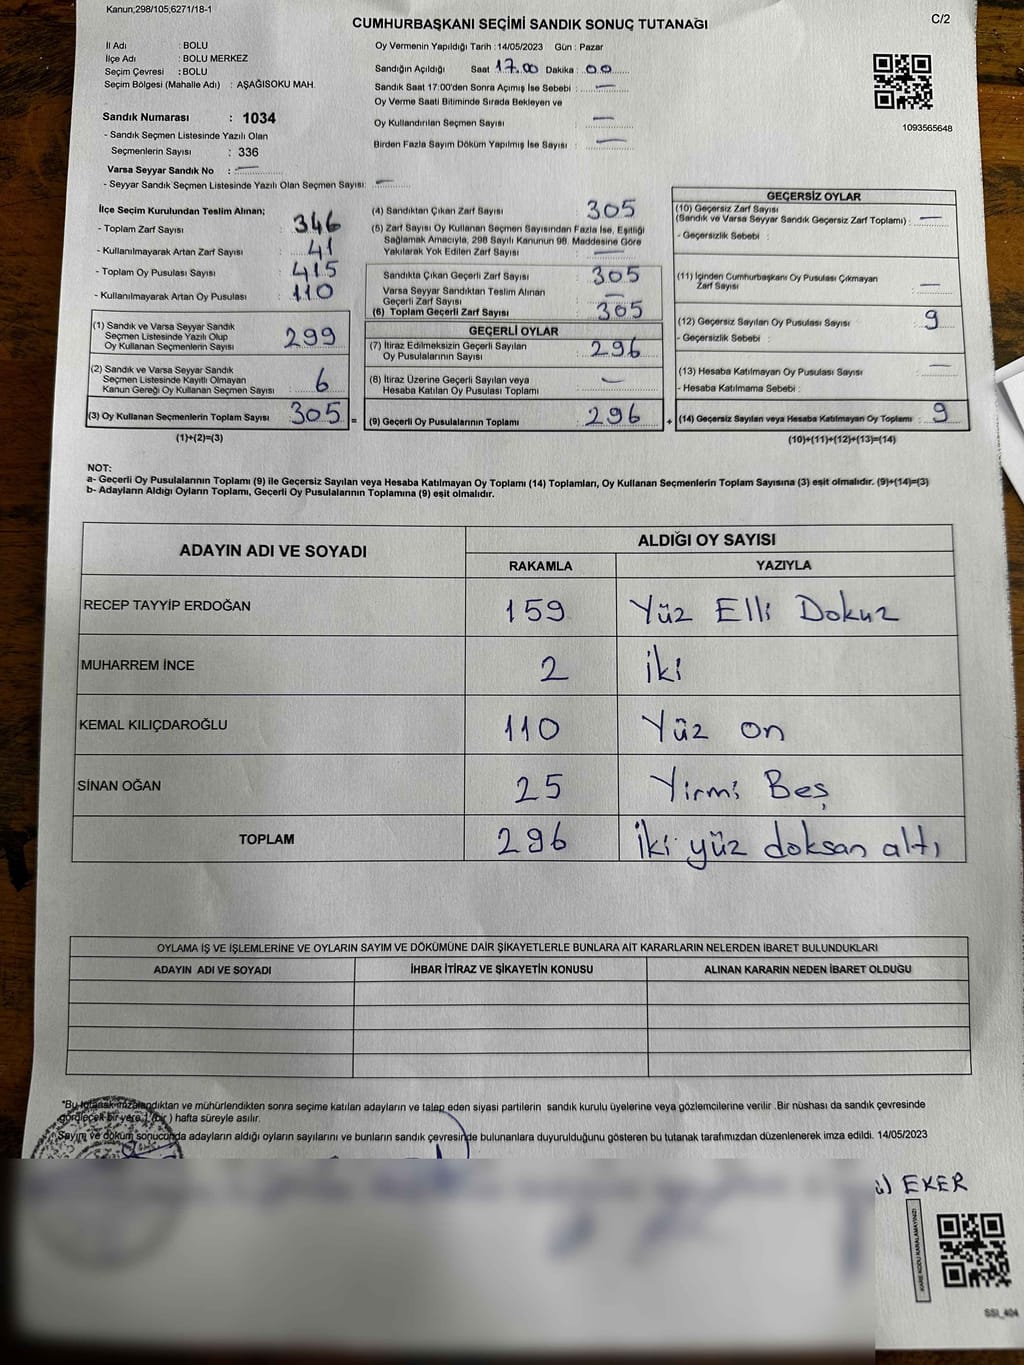 Kanun;298/105,6271/18-1
CUMHURBAŞKANI SEÇİMİ SANDIK SONUÇ TUTANAĞI
C/2
İl Adı : BOLU
İlçe Adı : BOLU MERKEZ
Seçim Çevresi : BOLU
Seçim Bölgesi (Mahalle Adı) : AŞAĞISOKU MAH.
Sandık Numarası : 1034
- Sandık Seçmen Listesinde Yazılı Olan
Seçmenlerin Sayısı : 336
Varsa Seyyar Sandık No : —
- Seyyar Sandık Seçmen Listesinde Yazılı Olan Seçmen Sayısı: —
Oy Vermenin Yapıldığı Tarih : 14/05/2023 Gün : Pazar
Sandığın Açıldığı Saat 17.00 Dakika : 00
Sandık Saat 17:00'den Sonra Açımış İse Sebebi : —
Oy Verme Saati Bitiminde Sırada Bekleyen ve
Oy Kullandırılan Seçmen Sayısı : —
Birden Fazla Sayım Döküm Yapılmış İse Sayısı : —
1093565648
İlçe Seçim Kurulundan Teslim Alınan;
- Toplam Zarf Sayısı : 346
- Kullanılmayarak Artan Zarf Sayısı : 41
- Toplam Oy Pusulası Sayısı : 415
- Kullanılmayarak Artan Oy Pusulası : 110
(1) Sandık ve Varsa Seyyar Sandık
Seçmen Listesinde Yazılı Olup
Oy Kullanan Seçmenlerin Sayısı : 299
(2) Sandık ve Varsa Seyyar Sandık
Seçmen Listesinde Kayıtlı Olmayan
Kanun Gereği Oy Kullanan Seçmen Sayısı : 6
(3) Oy Kullanan Seçmenlerin Toplam Sayısı : 305 =
(1)+(2)=(3)
(4) Sandıktan Çıkan Zarf Sayısı : 305
(5) Zarf Sayısı Oy Kullanan Seçmen Sayısından Fazla İse, Eşitliği
Sağlamak Amacıyla, 298 Sayılı Kanunun 98. Maddesine Göre
Yakılarak Yok Edilen Zarf Sayısı : —
Sandıkta Çıkan Geçerli Zarf Sayısı : 305
Varsa Seyyar Sandıktan Teslim Alınan
Geçerli Zarf Sayısı : —
(6) Toplam Geçerli Zarf Sayısı : 305
GEÇERLİ OYLAR
(7) İtiraz Edilmeksizin Geçerli Sayılan
Oy Pusulalarının Sayısı : 296
(8) İtiraz Üzerine Geçerli Sayılan veya
Hesaba Katılan Oy Pusulası Toplamı : —
(9) Geçerli Oy Pusulalarının Toplamı : 296 +
GEÇERSİZ OYLAR
(10) Geçersiz Zarf Sayısı
(Sandık ve Varsa Seyyar Sandık Geçersiz Zarf Toplamı) : —
- Geçersizlik Sebebi :
(11) İçinden Cumhurbaşkanı Oy Pusulası Çıkmayan
Zarf Sayısı : —
(12) Geçersiz Sayılan Oy Pusulası Sayısı : 9
- Geçersizlik Sebebi :
(13) Hesaba Katılmayan Oy Pusulası Sayısı : —
- Hesaba Katılmama Sebebi :
(14) Geçersiz Sayılan veya Hesaba Katılmayan Oy Toplamı : 9
(10)+(11)+(12)+(13)=(14)
NOT:
a- Geçerli Oy Pusulalarının Toplamı (9) ile Geçersiz Sayılan veya Hesaba Katılmayan Oy Toplamı (14) Toplamları, Oy Kullanan Seçmenlerin Toplam Sayısına (3) eşit olmalıdır. (9)+(14)=(3)
b- Adayların Aldığı Oyların Toplamı, Geçerli Oy Pusulalarının Toplamına (9) eşit olmalıdır.
ADAYIN ADI VE SOYADI ALDIĞI OY SAYISI
RAKAMLA YAZIYLA
RECEP TAYYİP ERDOĞAN 159 Yüz Elli Dokuz
MUHARREM İNCE 2 İki
KEMAL KILIÇDAROĞLU 110 Yüz on
SİNAN OĞAN 25 Yirmi Beş
TOPLAM 296 İki yüz doksan altı
OYLAMA İŞ VE İŞLEMLERİNE VE OYLARIN SAYIM VE DÖKÜMÜNE DAİR ŞİKAYETLERLE BUNLARA AİT KARARLARIN NELERDEN İBARET BULUNDUKLARI
ADAYIN ADI VE SOYADI İHBAR İTİRAZ VE ŞİKAYETİN KONUSU ALINAN KARARIN NEDEN İBARET OLDUĞU
*Bu tutanak imzalandıktan ve mühürlendikten sonra seçime katılan adayların ve talep eden siyasi partilerin sandık kurulu üyelerine veya gözlemcilerine verilir .Bir nüshası da sandık çevresinde
görülecek bir yere 1 (bir ) hafta süreyle asılır.
Sayım ve döküm sonucunda adayların aldığı oyların sayılarını ve bunların sandık çevresinde bulunanlara duyurulduğunu gösteren bu tutanak tarafımızdan düzenlenerek imza edildi. 14/05/2023
EKER
KARE KODU KARALAMAYINIZ!
SSİ_404